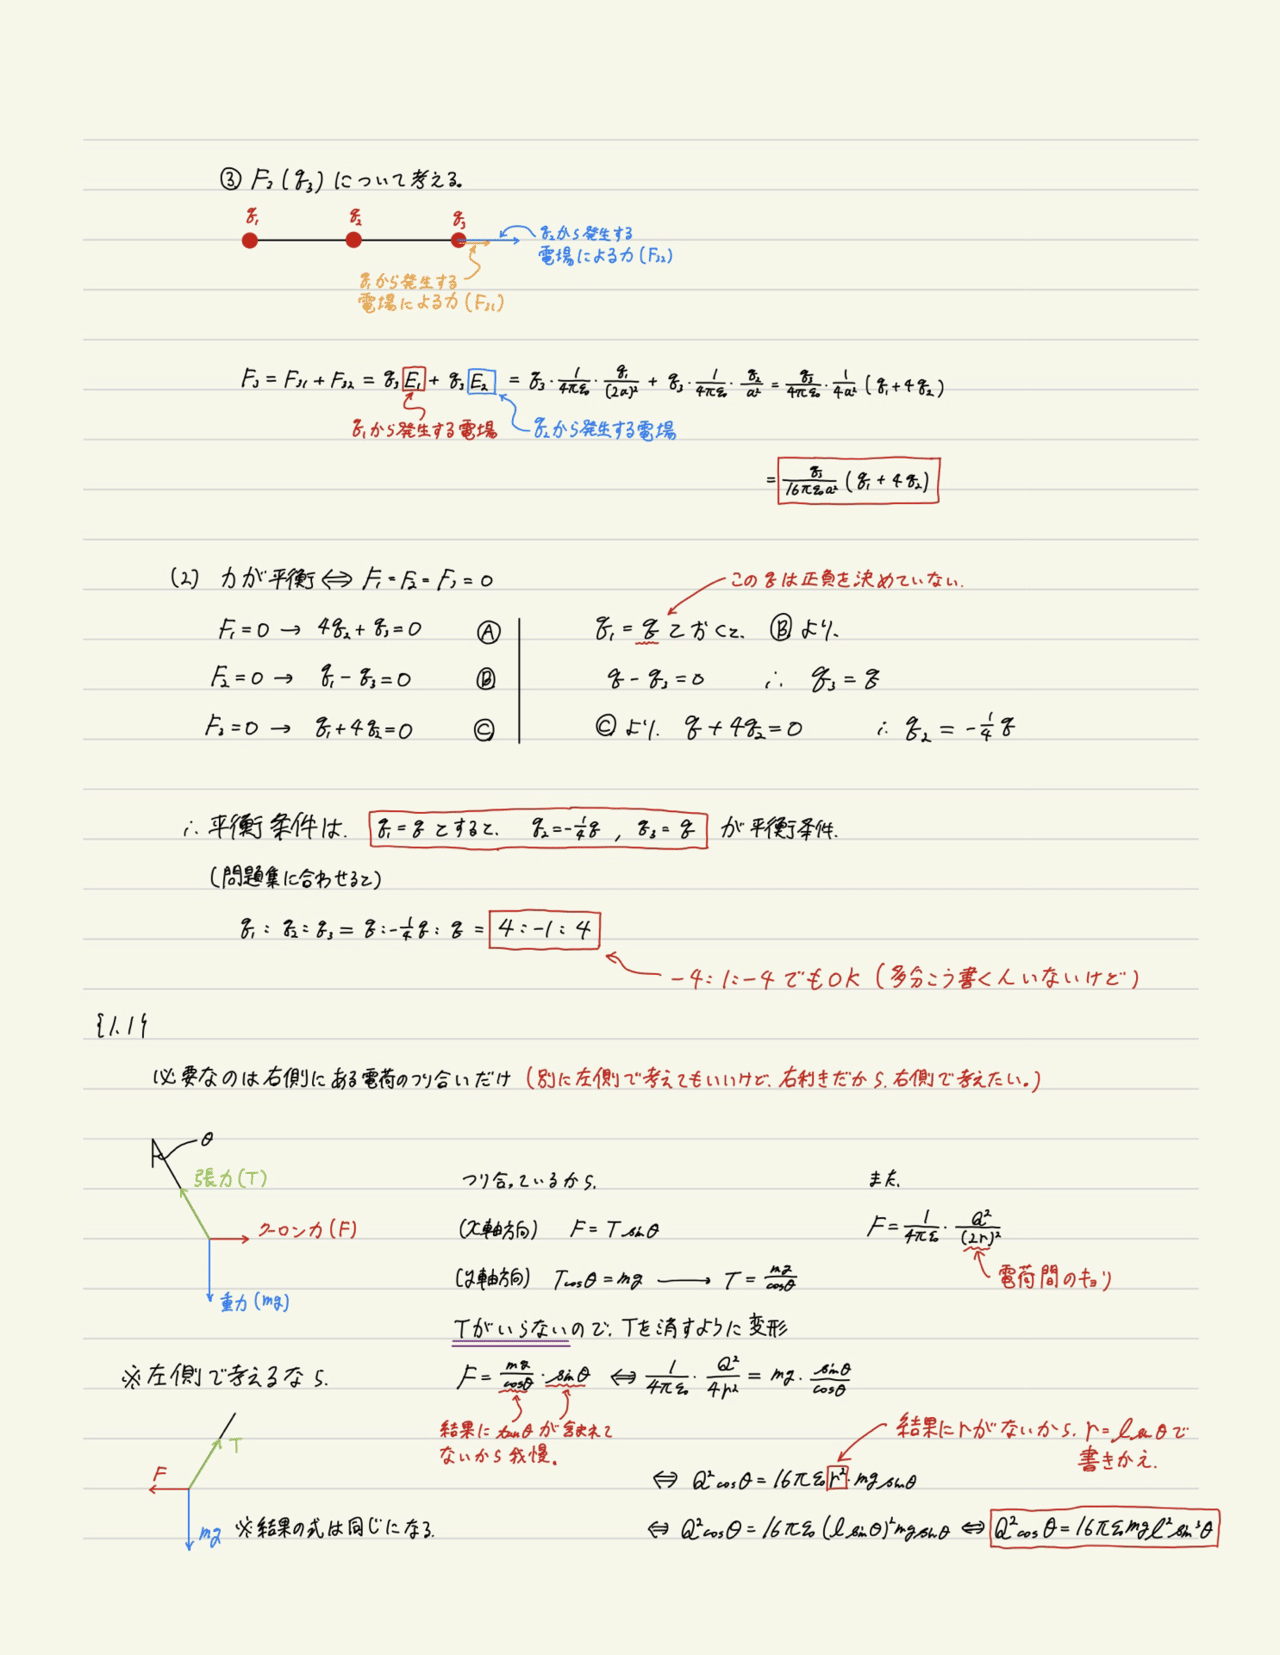 ③ F₃(q₃) について考える。
q₁ q₂ q₃
q₂から発生する
電場による力(F₃₂)
q₁から発生する
電場による力(F₃₁)
F₃ = F₃₁ + F₃₂ = q₃E₁ + q₃E₂ = q₃・1/4πε₀・q₁/(2a)² + q₃・1/4πε₀・q₂/a² = q₃/4πε₀・1/4a² (q₁+4q₂)
q₁から発生する電場 q₂から発生する電場
= q₃/16πε₀a² (q₁ + 4q₂)
(2) 力が平衡 ⟺ F₁ = F₂ = F₃ = 0
このqは正負を決めていない.
F₁=0 → 4q₂+q₃=0 Ⓐ
q₁ = q とおくと、Ⓑより、
F₂=0 → q₁-q₃=0 Ⓑ
q-q₃=0 ∴ q₃=q
F₃=0 → q₁+4q₂=0 Ⓒ
Ⓒより、q+4q₂=0 ∴ q₂ = -1/4q
∴ 平衡条件は、q₁=qとすると、q₂=-1/4q , q₃=q が平衡条件.
(問題集に合わせると)
q₁ : q₂ : q₃ = q : -1/4q : q = 4 : -1 : 4
-4:1:-4でもOK (多分こう書く人いないけど)
{1.1}
必要なのは右側にある電荷のつり合いだけ (別に左側で考えてもいいけど、右利きだから、右側で考えたい。)
θ
張力(T)
クーロン力(F)
重力(mg)
つり合っているから、
(x軸方向) F = T sinθ
(y軸方向) Tcosθ = mg → T = mg/cosθ
また、
F = 1/4πε₀・Q²/(2r)²
電荷間のキョリ
Tがいらないので、Tを消すように変形
F = mg/cosθ・sinθ ⟺ 1/4πε₀・Q²/4r² = mg・sinθ/cosθ
結果にtanθが含まれて
ないから我慢。
結果にrがないから、r = l sinθで
書きかえ.
⟺ Q²cosθ = 16πε₀r²・mg sinθ
⟺ Q²cosθ = 16πε₀(l sinθ)²mg sinθ ⟺ Q²cosθ = 16πε₀mgl²sin³θ
※左側で考えるなら、
T
F
mg
※結果の式は同じになる.